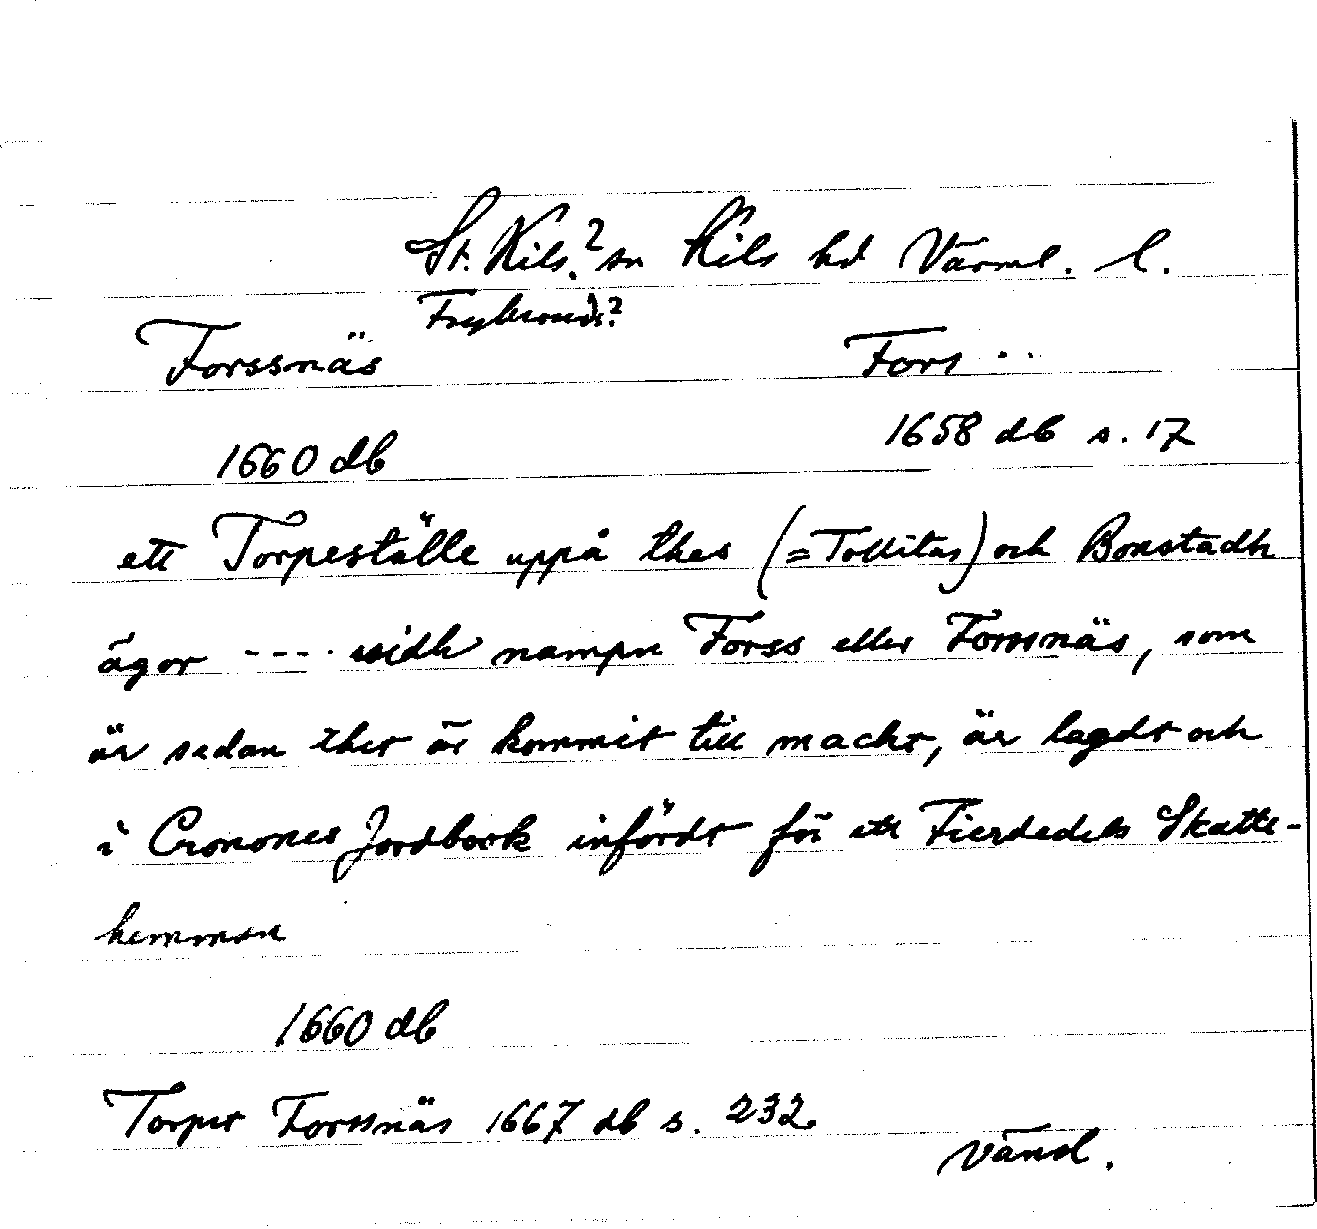 St. Kils.? sn Kils hd Värml. l.
Frykerud s.?
Forssnäs Fors ...
1660 db 1658 db s. 17
ett Torpeställe uppå thes (=Tollitas) och Bonstadh
ägor ---- widh nampn Forss eller Forssnäs, som
är sedan thet är kommit till macht, är lagdt och
i Cronones Jordbook infördt för ett Fierdedels Skatte-
hemman
1660 db
Torpet Forssnäs 1667 db s. 232.
Vänd.